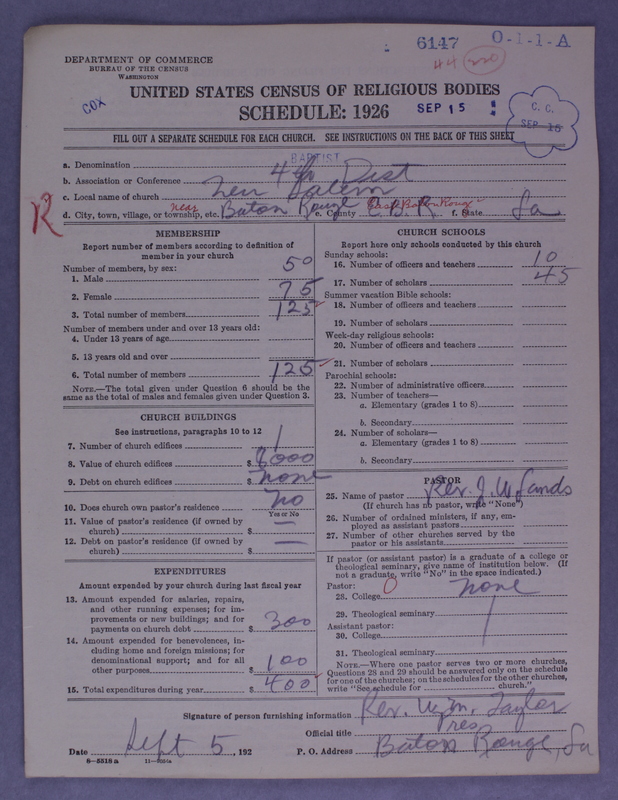 6147 O-1-1-A
44 220
DEPARTMENT OF COMMERCE
BUREAU OF THE CENSUS
WASHINGTON
UNITED STATES CENSUS OF RELIGIOUS BODIES
COX
SCHEDULE: 1926
SEP 15
C. C.
SEP 15
FILL OUT A SEPARATE SCHEDULE FOR EACH CHURCH. SEE INSTRUCTIONS ON THE BACK OF THIS SHEET
BAPTIST
a. Denomination
b. Association or Conference 4th Dist
c. Local name of church New Salem
d. City, town, village, or township, etc. near Baton Rouge e. County E. B. R. East Baton Rouge f. State La
R
MEMBERSHIP
Report number of members according to definition of
member in your church
Number of members, by sex:
1. Male 50
2. Female 75
3. Total number of members 125
Number of members under and over 13 years old:
4. Under 13 years of age
5. 13 years old and over
6. Total number of members 125
NOTE.—The total given under Question 6 should be the
same as the total of males and females given under Question 3.
CHURCH BUILDINGS
See instructions, paragraphs 10 to 12
7. Number of church edifices 1
8. Value of church edifices $ 8000
9. Debt on church edifices $ none
10. Does church own pastor's residence no
Yes or No
11. Value of pastor's residence (if owned by
church) $ —
12. Debt on pastor's residence (if owned by
church) $ —
EXPENDITURES
Amount expended by your church during last fiscal year
13. Amount expended for salaries, repairs,
and other running expenses; for im-
provements or new buildings; and for
payments on church debt $ 300
14. Amount expended for benevolences, in-
cluding home and foreign missions; for
denominational support; and for all
other purposes $ 100
15. Total expenditures during year $ 400
CHURCH SCHOOLS
Report here only schools conducted by this church
Sunday schools:
16. Number of officers and teachers 10
17. Number of scholars 45
Summer vacation Bible schools:
18. Number of officers and teachers
19. Number of scholars
Week-day religious schools:
20. Number of officers and teachers
21. Number of scholars
Parochial schools:
22. Number of administrative officers
23. Number of teachers—
a. Elementary (grades 1 to 8)
b. Secondary
24. Number of scholars—
a. Elementary (grades 1 to 8)
b. Secondary
PASTOR
25. Name of pastor Rev. J. W. Sands
(If church has no pastor, write "None")
26. Number of ordained ministers, if any, em-
ployed as assistant pastors
27. Number of other churches served by the
pastor or his assistants
If pastor (or assistant pastor) is a graduate of a college or
theological seminary, give name of institution below. (If
not a graduate, write "No" in the space indicated.)
Pastor: 0
28. College none
29. Theological seminary
Assistant pastor:
30. College
31. Theological seminary
NOTE.—Where one pastor serves two or more churches,
Questions 28 and 29 should be answered only on the schedule
for one of the churches; on the schedules for the other churches,
write "See schedule for church."
Signature of person furnishing information Rev. Wm. Taylor
Official title Pres
Date Sept 5, 192 P. O. Address Baton Rouge, La
8—5518a